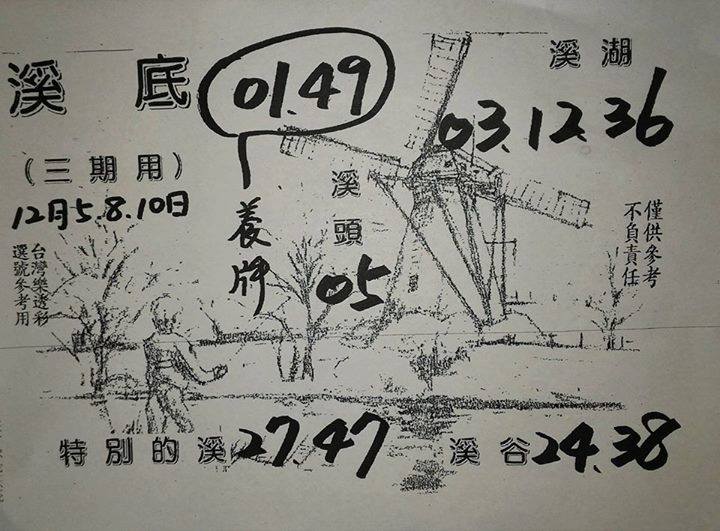 溪底 01.49
(三期用)
12月5.8.10日
台灣樂透彩
選號參考用
養牌
溪頭
05
溪湖
03.12.36
僅供參考
不負責任
特別的溪 27.47
溪谷 24.38